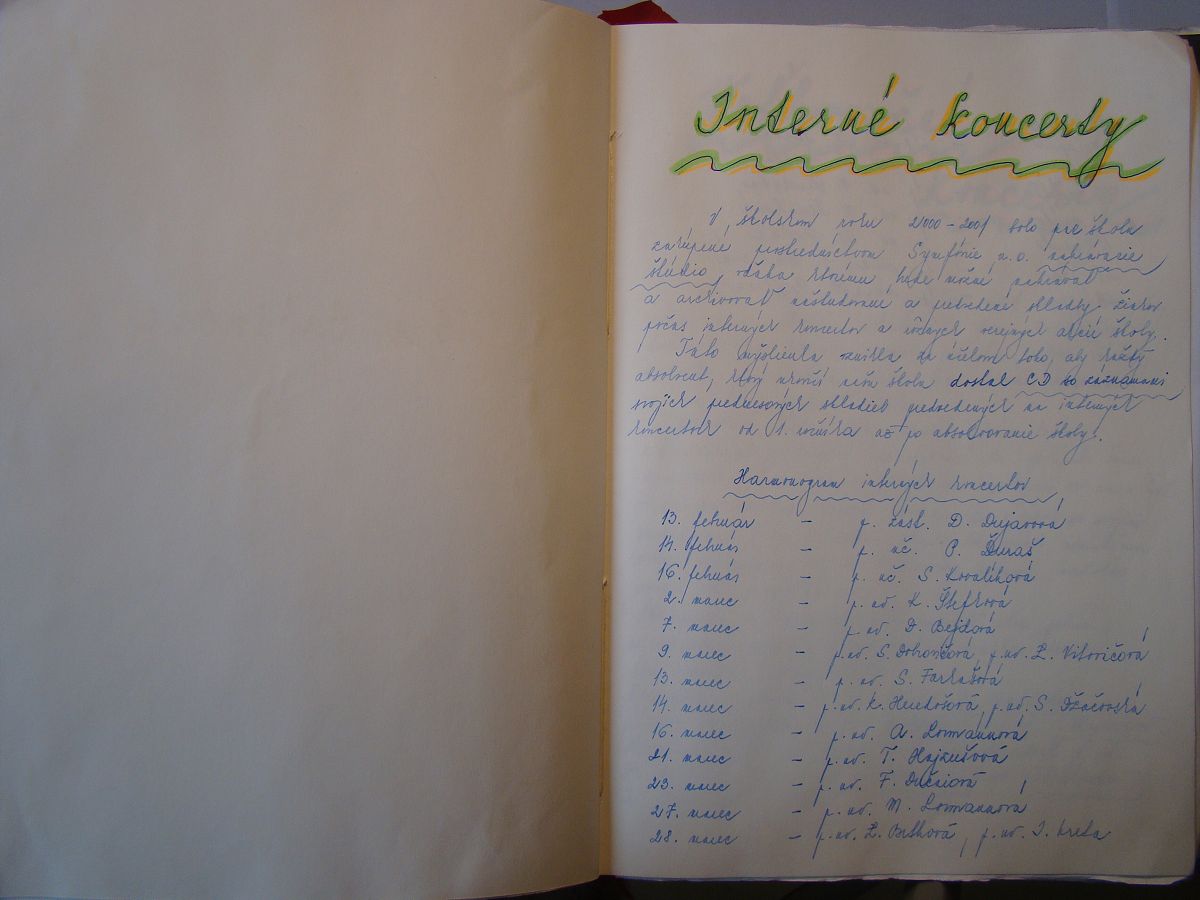 Interné koncerty
V školskom roku 2000-2001 bolo pre školu
zakúpené prostredníctvom Symfónie n.o. nahrávacie
štúdio, vďaka ktorému bude možné nahrávať
a archivovať naštudované a predvedené skladby žiakov
počas interných koncertov a rôznych verejných akcií školy.
Táto myšlienka vznikla za účelom toho, aby každý
absolvent, ktorý ukončí našu školu dostal CD so záznamami
svojich prednesových skladieb predvedených na interných
koncertoch od 1. ročníka až po absolvovanie školy.
Harmonogram interných koncertov
13. február - p. zást. D. Dujavová
14. február - p. uč. P. Ďuraš
16. február - p. uč. S. Kovalíková
2. marec - p. uč. K. Štefková
7. marec - p. uč. D. Bejdová
9. marec - p. uč. S. Dohončová, p. uč. Ľ. Vitovičová
13. marec - p. uč. S. Farkašová
14. marec - p. uč. K. p. uč. S.
16. marec - p. uč. A. Lormannová
21. marec - p. uč. T. Hajkušová
23. marec - p. uč. F.
27. marec - p. uč. M. Lormannová
28. marec - p. uč. Ľ. p. uč. J. Kreta